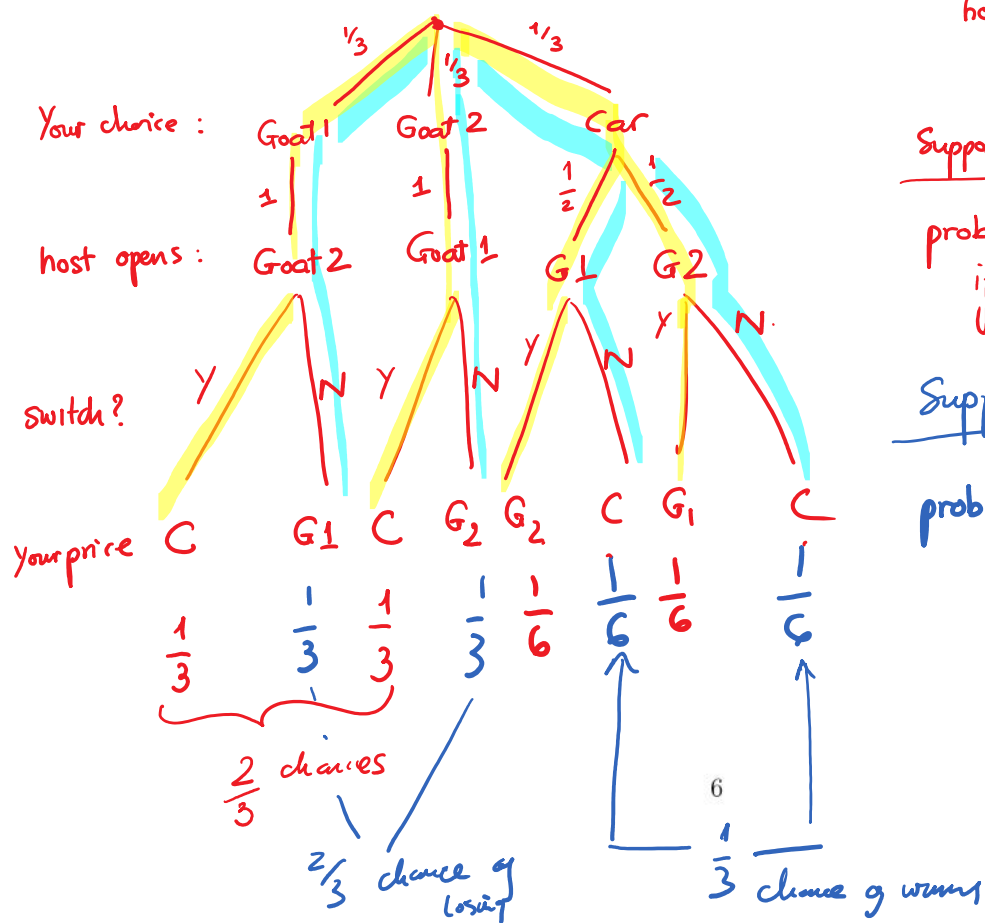 ho
1/3 1/3 1/3
Your choice : Goat 1 Goat 2 Car
Suppo
1 1 1/2 1/2
host opens : Goat 2 Goat 1 G1 G2
prob
Y N Y N Y N Y N
switch?
Supp
Your price C G1 C G2 G2 C G1 C
prob
1/3 1/3 1/3 1/3 1/6 1/6 1/6 1/6
2/3 chances
6
2/3 chance of losing
1/3 chance of